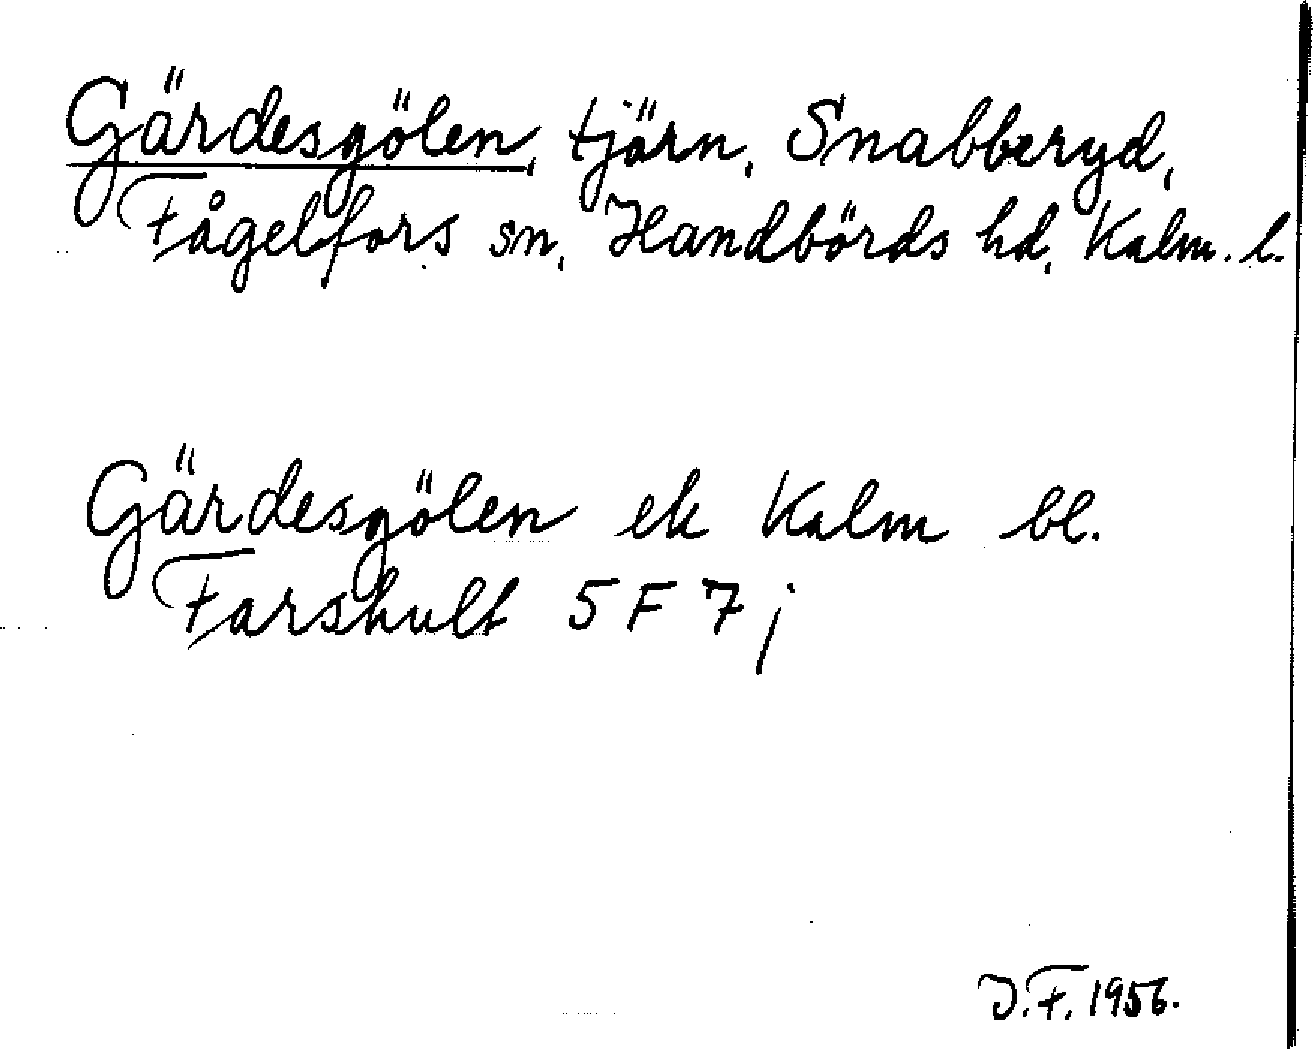 Gärdesgölen, tjärn, Snabberyd,
Fågelfors sn, Handbörds hd, Kalm. l.
Gärdesgölen ek Kalm bl.
Farshult 5 F 7 j
J.F. 1956.